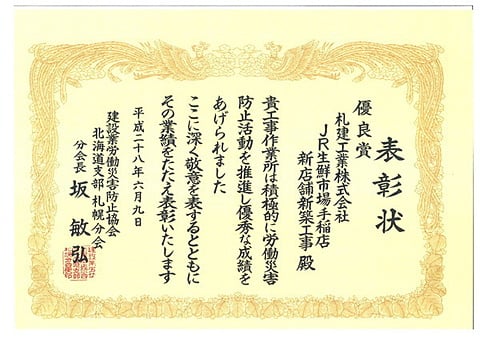 表彰状
優良賞
札建工業株式会社
JR生鮮市場手稲店
新店舗新築工事 殿
貴工事作業所は積極的に労働災害
防止活動を推進し優秀な成績を
あげられました
ここに深く敬意を表するとともに
その業績をたたえ表彰いたします
平成二十八年六月九日
建設業労働災害防止協会
北海道支部札幌分会
分会長 坂 敏弘